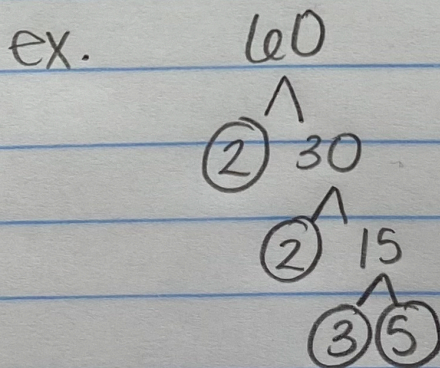 ex. 60
2 30
2 15
3 5